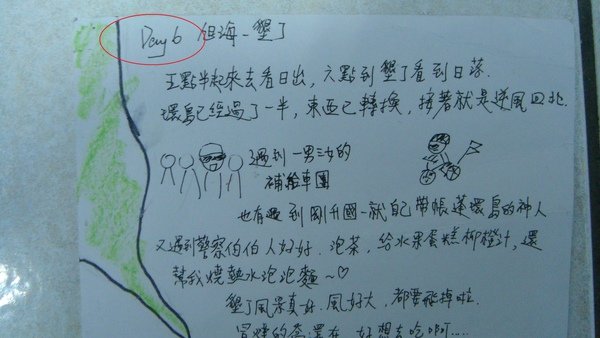 Day 6 旦海-墾丁
五點半起來去看日出，六點到墾丁看到日落.
環島已經過了一半，東西已轉換，接著就是逆風回北.
遇到一男三女的
補給車團
也有遇到剛升國一就自己帶帳蓬環島的神人
又遇到警察伯伯人好好.泡茶，給水果蛋糕柳橙汁，還
幫我燒熱水泡泡麵~♡
墾丁風景真好.風好大，都要飛掉啦.
的 還在 好想去吃啊……